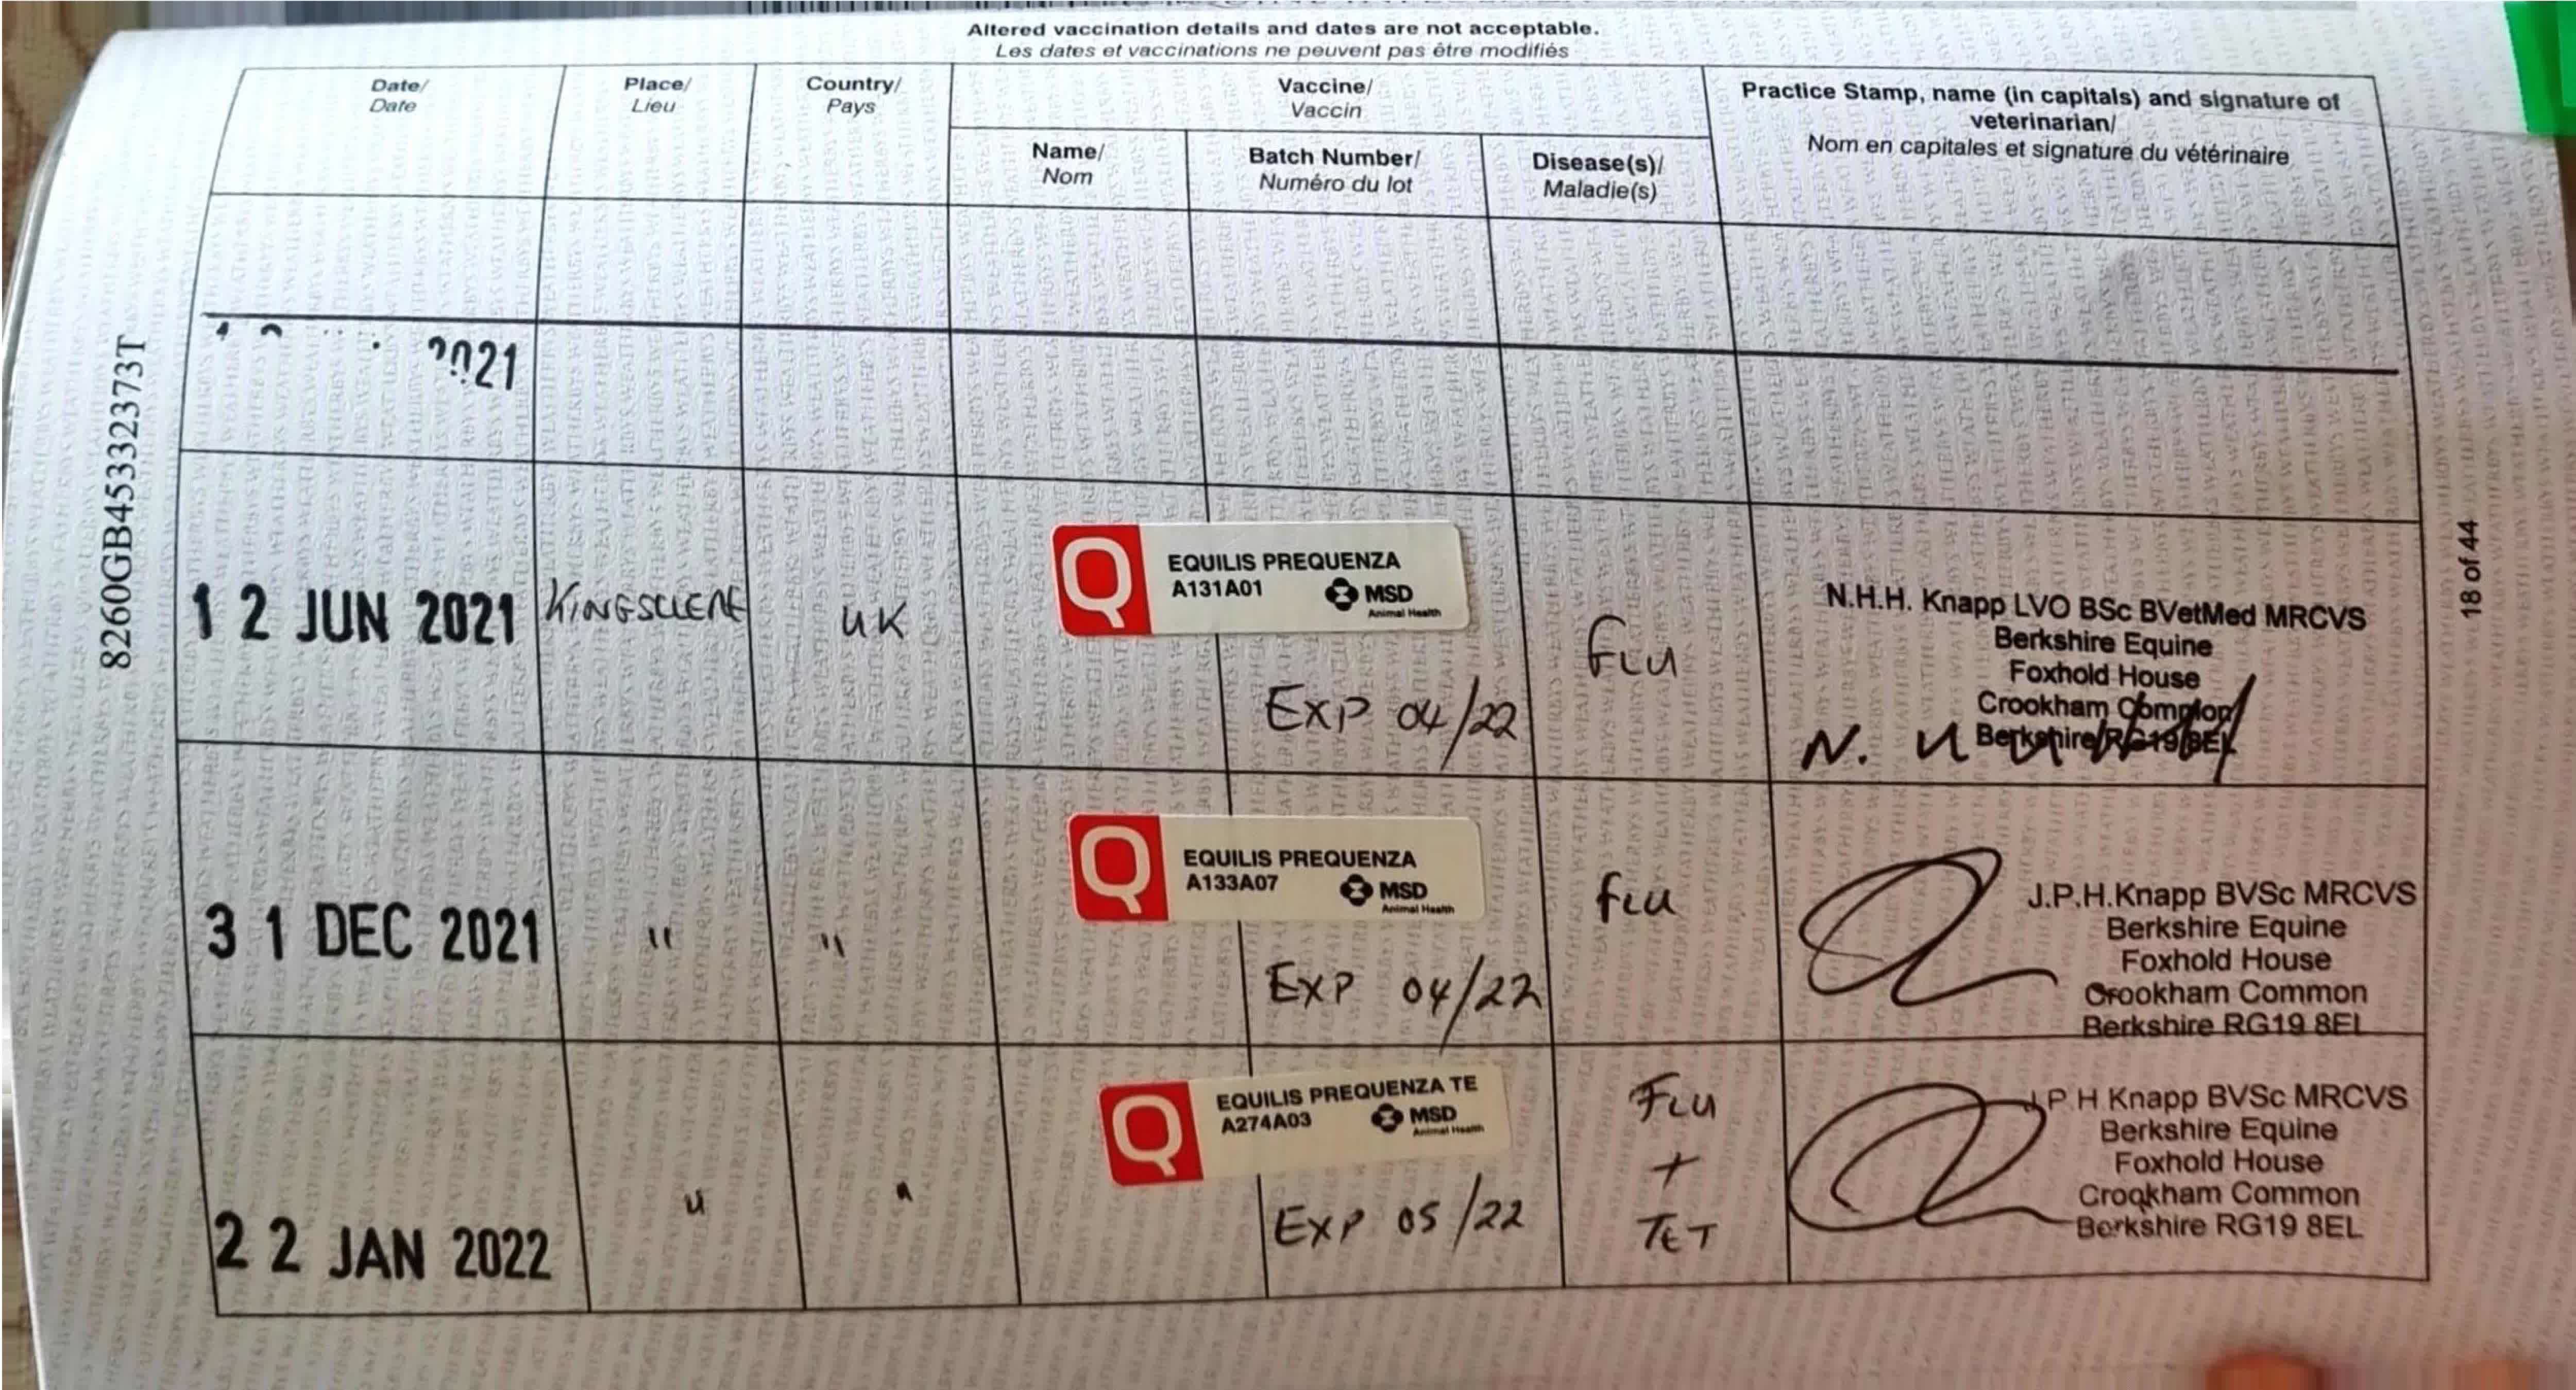 Altered vaccination details and dates are not acceptable.
Les dates et vaccinations ne peuvent pas être modifiés
Date/
Date
Place/
Lieu
Country/
Pays
Vaccine/
Vaccin
Name/
Nom
Batch Number/
Numéro du lot
Disease(s)/
Maladie(s)
Practice Stamp, name (in capitals) and signature of
veterinarian/
Nom en capitales et signature du vétérinaire
2021
12 JUN 2021
KINGSCLERE
UK
Q
EQUILIS PREQUENZA
A131A01
MSD
Animal Health
EXP 04/22
FLU
N.H.H. Knapp LVO BSc BVetMed MRCVS
Berkshire Equine
Foxhold House
Crookham Common
Berkshire RG19 8EL
31 DEC 2021
"
"
Q
EQUILIS PREQUENZA
A133A07
MSD
Animal Health
EXP 04/22
FLU
J.P.H.Knapp BVSc MRCVS
Berkshire Equine
Foxhold House
Crookham Common
Berkshire RG19 8EL
22 JAN 2022
"
"
Q
EQUILIS PREQUENZA TE
A274A03
MSD
Animal Health
EXP 05/22
FLU
+
TET
J.P H Knapp BVSc MRCVS
Berkshire Equine
Foxhold House
Crookham Common
Berkshire RG19 8EL
8260GB45332373T
18 of 44